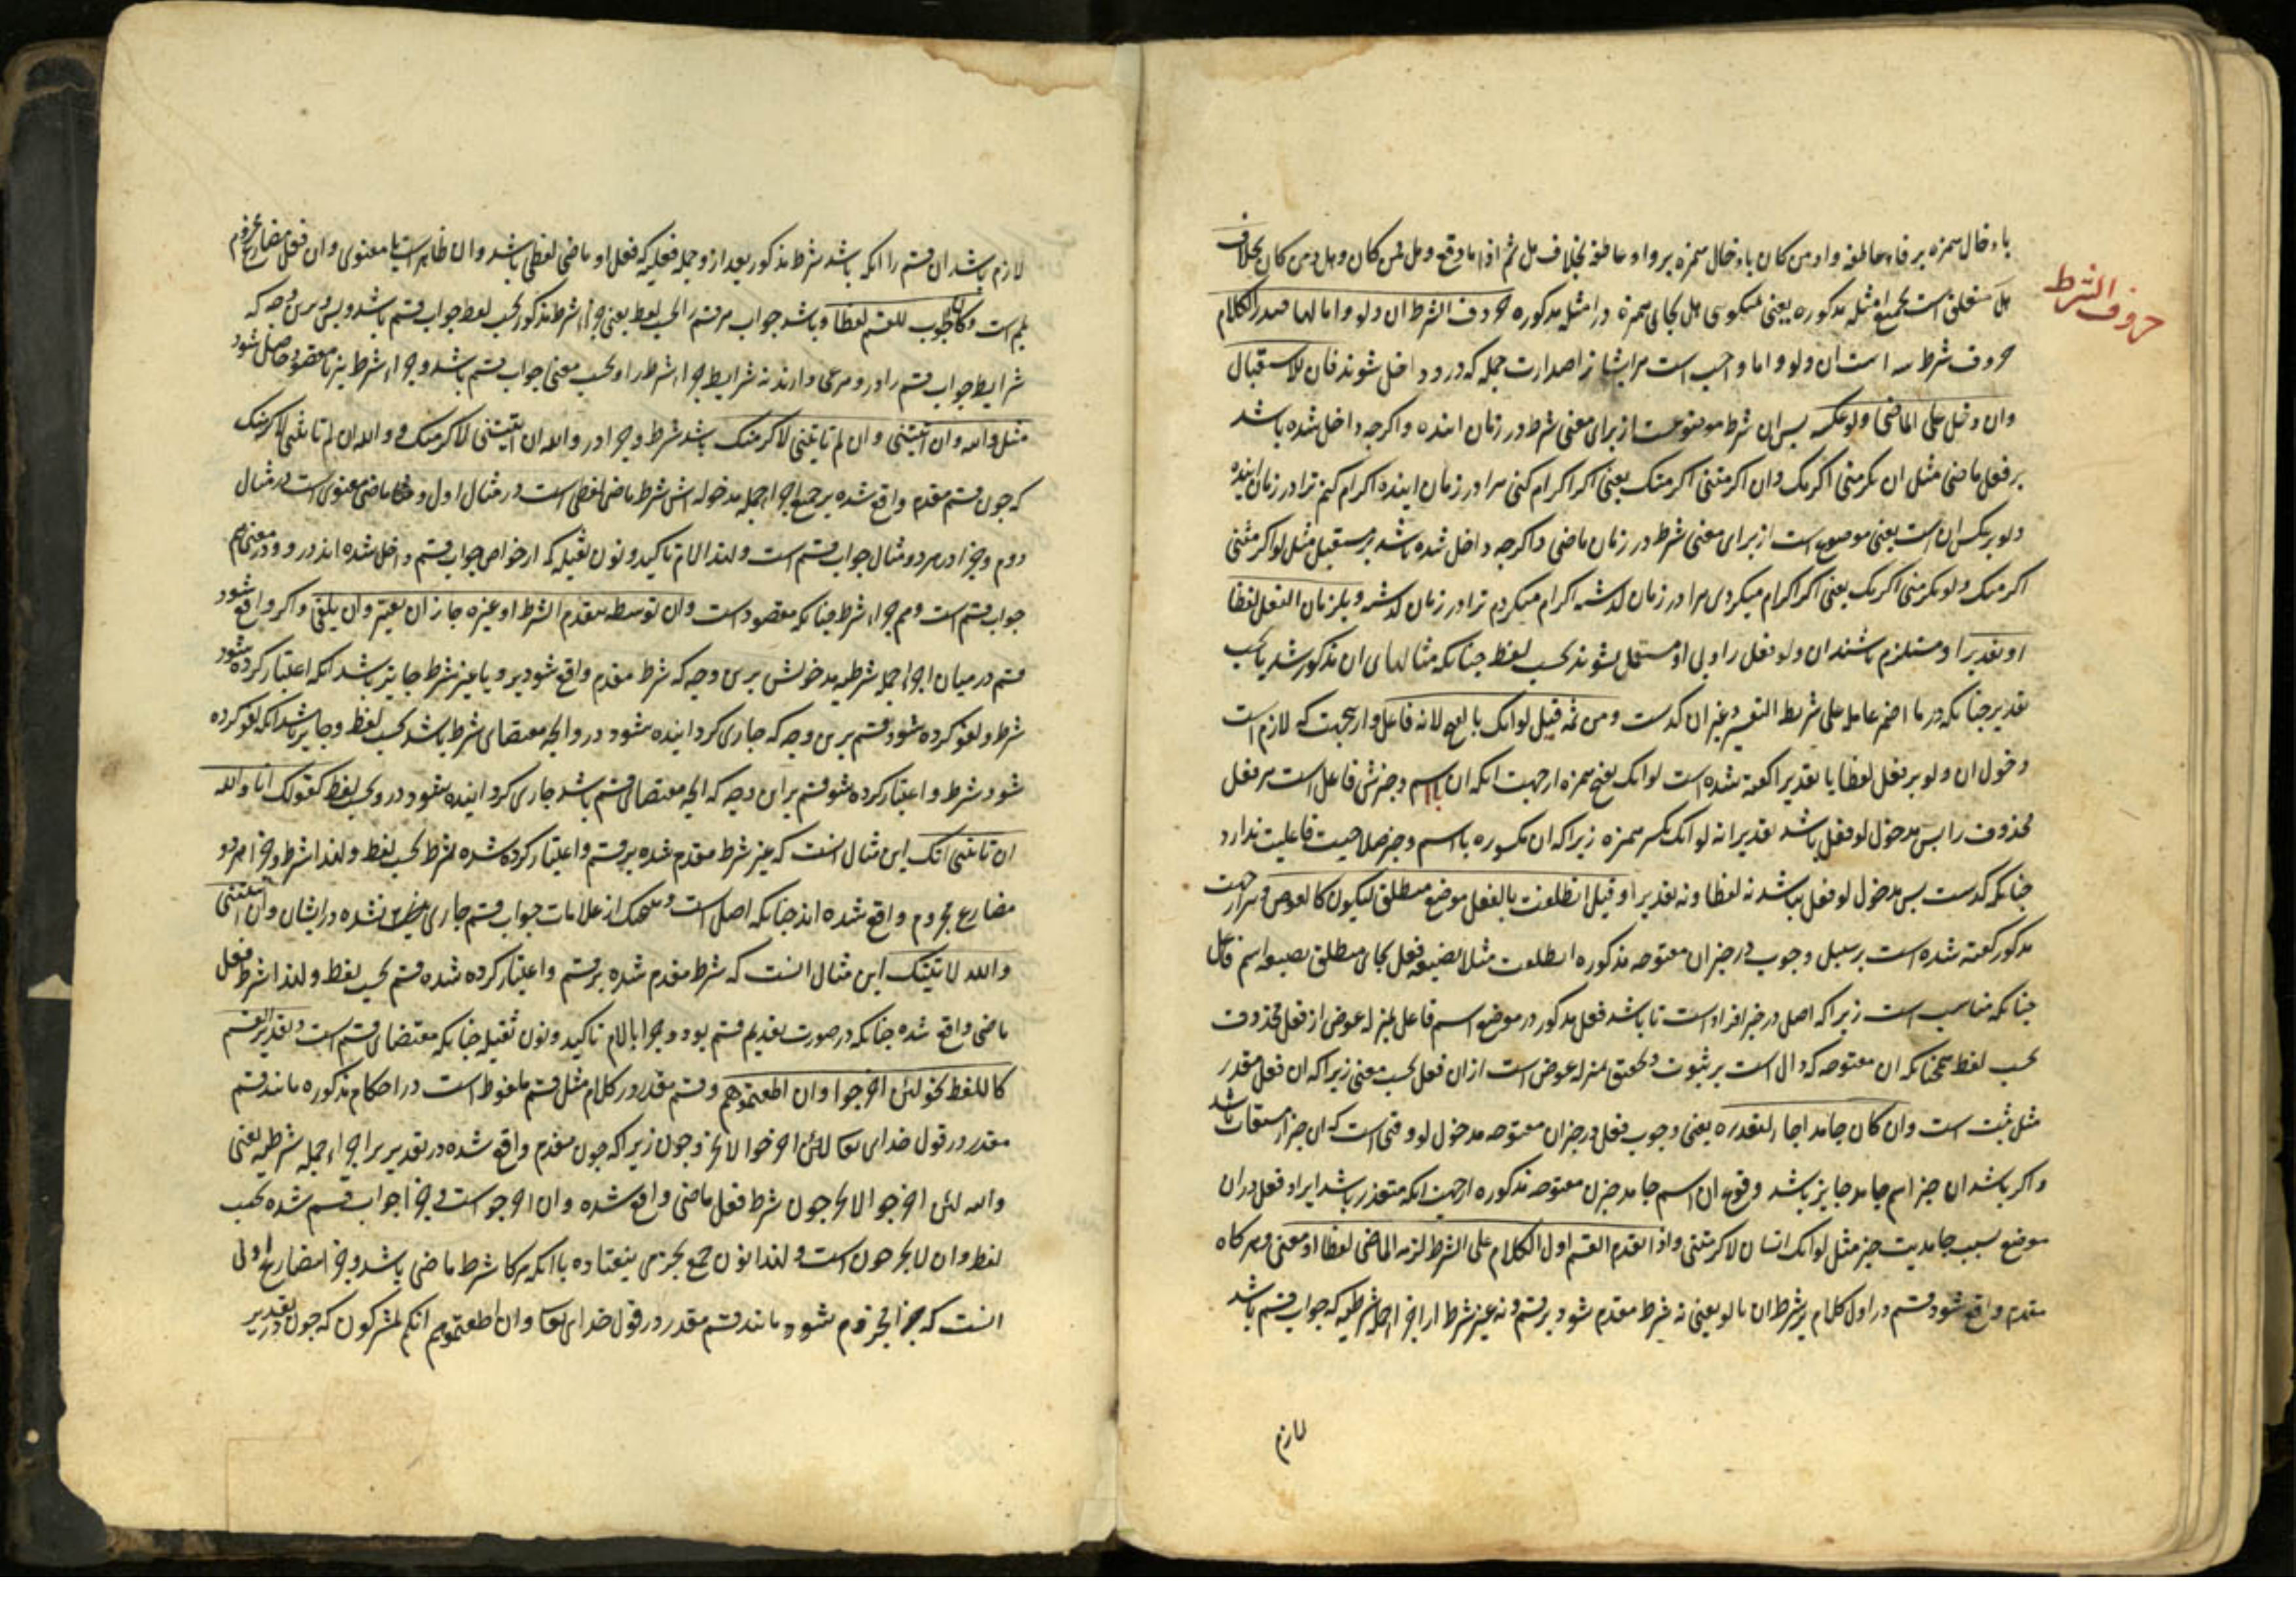 حروف الشرط
بادخال همزه بر فاء عاطفه و او من كان بادخال همزه بر واو عاطفه بخلاف هل ثم اذا ما وقع و هل فمن كان و هل و من كان بخلاف
هل متعلق است بجميع امثله مذكوره يعنى نميكوى هل بجاى همزه در امثله مذكوره حروف الشرط ان و لو و اما لها صدر الكلام
حروف شرط سه است ان و لو و اما واجب است مر ايشانرا صدارت جمله كه در و داخل شوند فان للاستقبال
وان دخل على الماضى و لو عكسه پس ان شرط موضوعست از براى معنى شرط در زمان اينده و اكرچه داخل شده باشد
بر فعل ماضى مثل ان تكرمنى اكرمك و ان اكرمتنى اكرمتك يعنى اكر اكرام كنى مرا در زمان اينده اكرام كنم ترا در زمان اينده
و لو بر عكس ان است يعنى موضوع است از براى معنى شرط در زمان ماضى و اكرچه داخل شده باشد بر مستقبل مثل لو اكرمتنى
اكرمتك و لو تكرمنى اكرمك يعنى اكر اكرام ميكردى مرا در زمان كذشته اكرام ميكردم ترا در زمان كذشته و يلزمان الفعل لفظا
او تقديرا و مستلزم باشند ان و لو فعل را و بى او مستعمل نشوند بحسب لفظ چنانكه مثالهاى ان مذكور شد يا بحسب
تقدير چنانكه در ما اضمر عامله على شريطة التفسير و غير ان كذشت و من ثمه قيل لو انك بالفتح لانه فاعل و از جهت كه لازم است
دخول ان و لو بر فعل لفظا يا تقديرا كفته شده است لو انك بفتح همزه از جهت انكه ان با اسم و خبرش فاعل است مر فعل
محذوف را پس مدخول لو فعل باشد تقديرا نه لو انك بكسر همزه زيرا كه ان مكسوره با اسم و خبر صلاحيت فاعليت ندارد
چنانكه كذشت پس مدخول لو فعل نباشد نه لفظا و نه تقديرا و قيل انطلقت بالفعل موضع منطلق ليكون كالعوض و از جهت
مذكور كفته شده است بر سبيل وجوب در خبر ان مفتوحه مذكوره انطلقت مثلا بصيغه فعل بجاى منطلق بصيغه اسم فاعل
چنانكه مناسب است زيرا كه اصل در خبر افراد است تا باشد فعل مذكور در موضع اسم فاعل بمنزله عوض از فعل محذوف
بحسب لفظ همچنانكه ان مفتوحه كه دال است بر ثبوت و تحقق بمنزله عوض است از ان فعل بحسب معنى زيرا كه ان فعل مقدر
مثل ثبت است وان كان جامدا جاز لتعذره يعنى وجوب فعل در خبر ان مفتوحه مدخول لو وقتى است كه ان خبر از مشتقات باشد
و اكر باشد ان خبر اسم جامد جايز باشد وقوع ان اسم جامد خبر ان مفتوحه مذكوره از جهت انكه متعذر باشد ايراد فعل در ان
موضع بسبب جامديت خبر مثل لو انك انسان لاكرمتنى و اذا تقدم القسم اول الكلام على الشرط لزمه الماضى لفظا او معنى و هركاه
مقدم واقع شود قسم در اول كلام بر شرط ان يا لو يعنى نه شرط مقدم شود بر قسم و نه غير شرط از اجزاء جمله شرطيه كه جواب قسم باشد
لازم
لازم باشد ان قسم را انكه باشد شرط مذكور بعد از و جمله فعليه كه فعل او ماضى لفظى باشد و ان ظاهر است يا معنوى و ان فعل مضارع مجزوم
بلم است و كان الجواب للقسم لفظا و باشد جواب مر قسم را بحسب لفظ يعنى جزاء شرط مذكور بحسب لفظ جواب قسم باشد و بس برين وجه كه
شرايط جواب قسم را در و مرعى دارند نه شرايط جزاء شرط را و بحسب معنى جواب قسم باشد و جزاء شرط نيز تا مقصود حاصل شود
مثل والله ان اتيتنى و ان لم تاتنى لاكرمنك باشد شرط و جزا در والله ان اتيتنى لاكرمنك و والله ان لم تاتنى لاكرمنك
كه چون قسم مقدم واقع شده بر جميع اجزاء جمله مدخوله اش شرط ماضى لفظى است در مثال اول و ماضى معنوى است در مثال
دوم و جزا در هر دو مثال جواب قسم است و لهذا لام تاكيد و نون ثقيله كه از خواص جواب قسم داخل شده اند در و و در معنى هم
جواب قسم است و هم جزاء شرط چنانكه مقصود است و ان توسط بتقدم الشرط او غيره جاز ان يعتبر و ان يلغى و اكر واقع شود
قسم در ميان اجزاء جمله شرطيه مدخولش برين وجه كه شرط مقدم واقع شود برو يا غير شرط جايز باشد انكه اعتبار كرده شود
شرط و لغو كرده شود قسم برين وجه كه جارى كردانيده شود در و انچه مقتضاى شرط باشد بحسب لفظ و جايز باشد انكه لغو كرده
شود شرط و اعتبار كرده شود قسم براين وجه كه انچه مقتضاى قسم باشد جارى كردانيده شود در و بحسب لفظ كقولك انا والله
ان تاتنى اتك اين مثال انست كه غير شرط مقدم شده بر قسم و اعتبار كرده شده شرط بحسب لفظ و لهذا شرط و جزا هر دو
مضارع مجزوم واقع شده اند چنانكه اصل است و هيچيك از علامات جواب قسم جارى نشده در ايشان و ان اتيتنى
والله لاتينك اين مثال انست كه شرط مقدم شده بر قسم و اعتبار كرده شده قسم بحسب لفظ و لهذا شرط فعل
ماضى واقع شده چنانكه در صورت تقديم قسم بود و جزا با لام تاكيد و نون ثقيله چنانكه مقتضاى قسم است و تقدير القسم
كاللفظ نحو لئن اخرجوا و ان اطعتموهم و قسم مقدر در كلام مثل قسم ملفوظ است در احكام مذكوره مانند قسم
مقدر در قول خداى تعا لئن اخرجوا لا يخرجون زيرا كه چون مقدم واقع شده در تقدير بر اجزاء جمله شرطيه يعنى
والله لئن اخرجوا لا يخرجون شرط فعل ماضى واقع شده و ان اخرجوا است و جزا جواب قسم شده بحسب
لفظ و ان لا يخرجون است و لهذا نون جمع بجزمى نيفتاده با انكه هركاه شرط ماضى باشد و جزا مضارع اولى
انست كه جزا مجزوم شود و مانند قسم مقدر در قول خداى تعا و ان اطعتموهم انكم لمشركون كه چون در تقدير